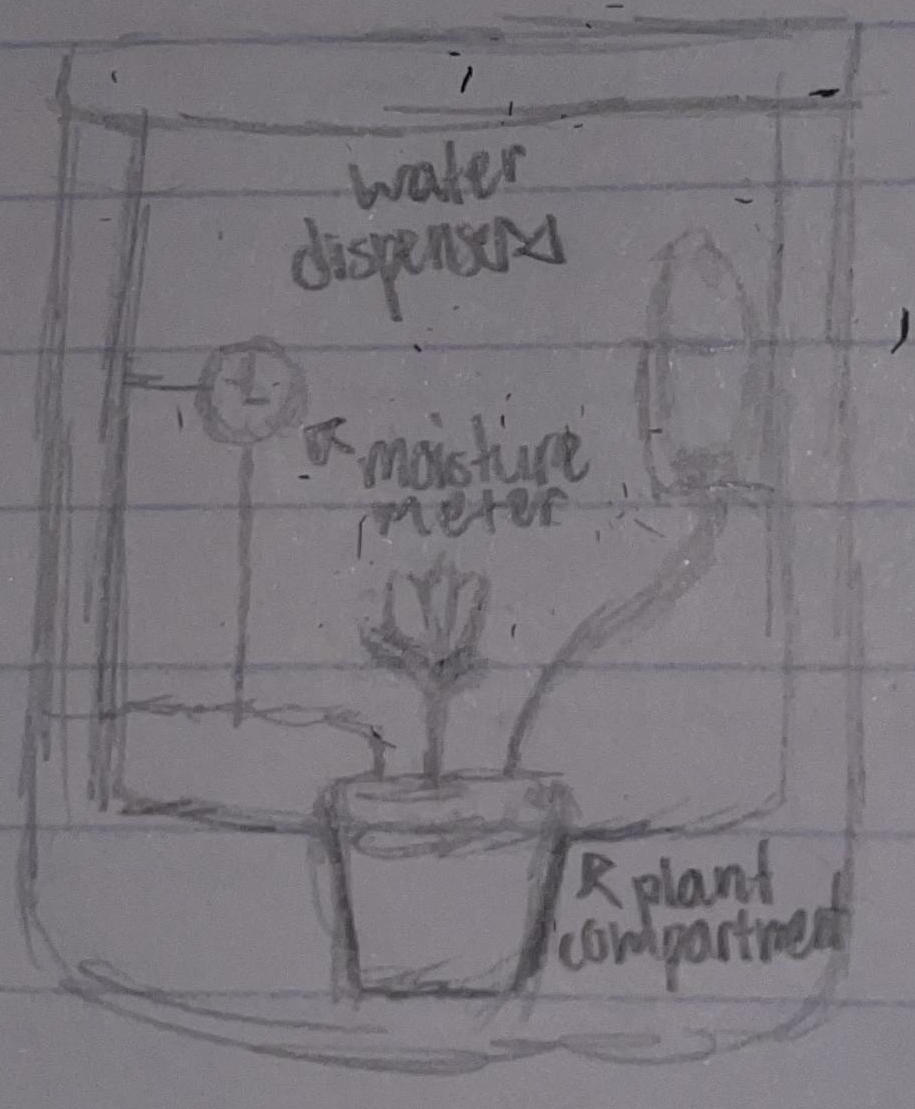 water
dispenser
moisture
meter
plant
compartment